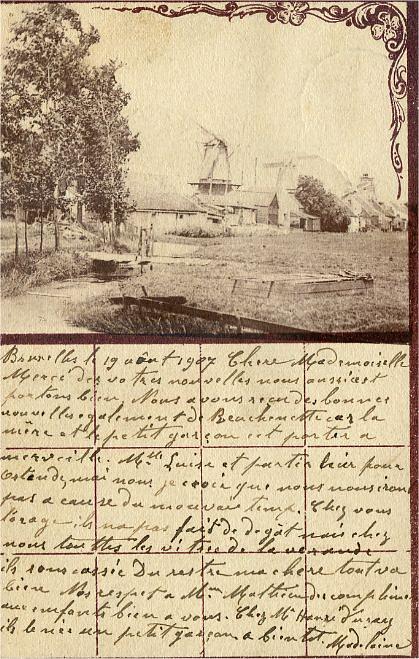 Bruxelles le 19 août 1907 Chere Mademoiselle
Merçe des votres nouvelles nous aussi cest
portons bien. Nous avons recu des bonnes
nouvelles egalement de car la
mère et le petit garçon cet porter a
merveille. Mlle Luise et partir hier pour
Ostende, moi nous je crois que nous nous irons
pas a cause du mouvai temp. Chez vous
l'orage ils na pas fait de degât mais chez
nous touttes les vitres de la verande
ils sons cassée Du reste ma chere tout va
bien Nos respect a Mme Mathieu des compliment
aux enfants bien a vous. Chez Mr Henri
ils le née un petit garçon a bientot. Madelaine